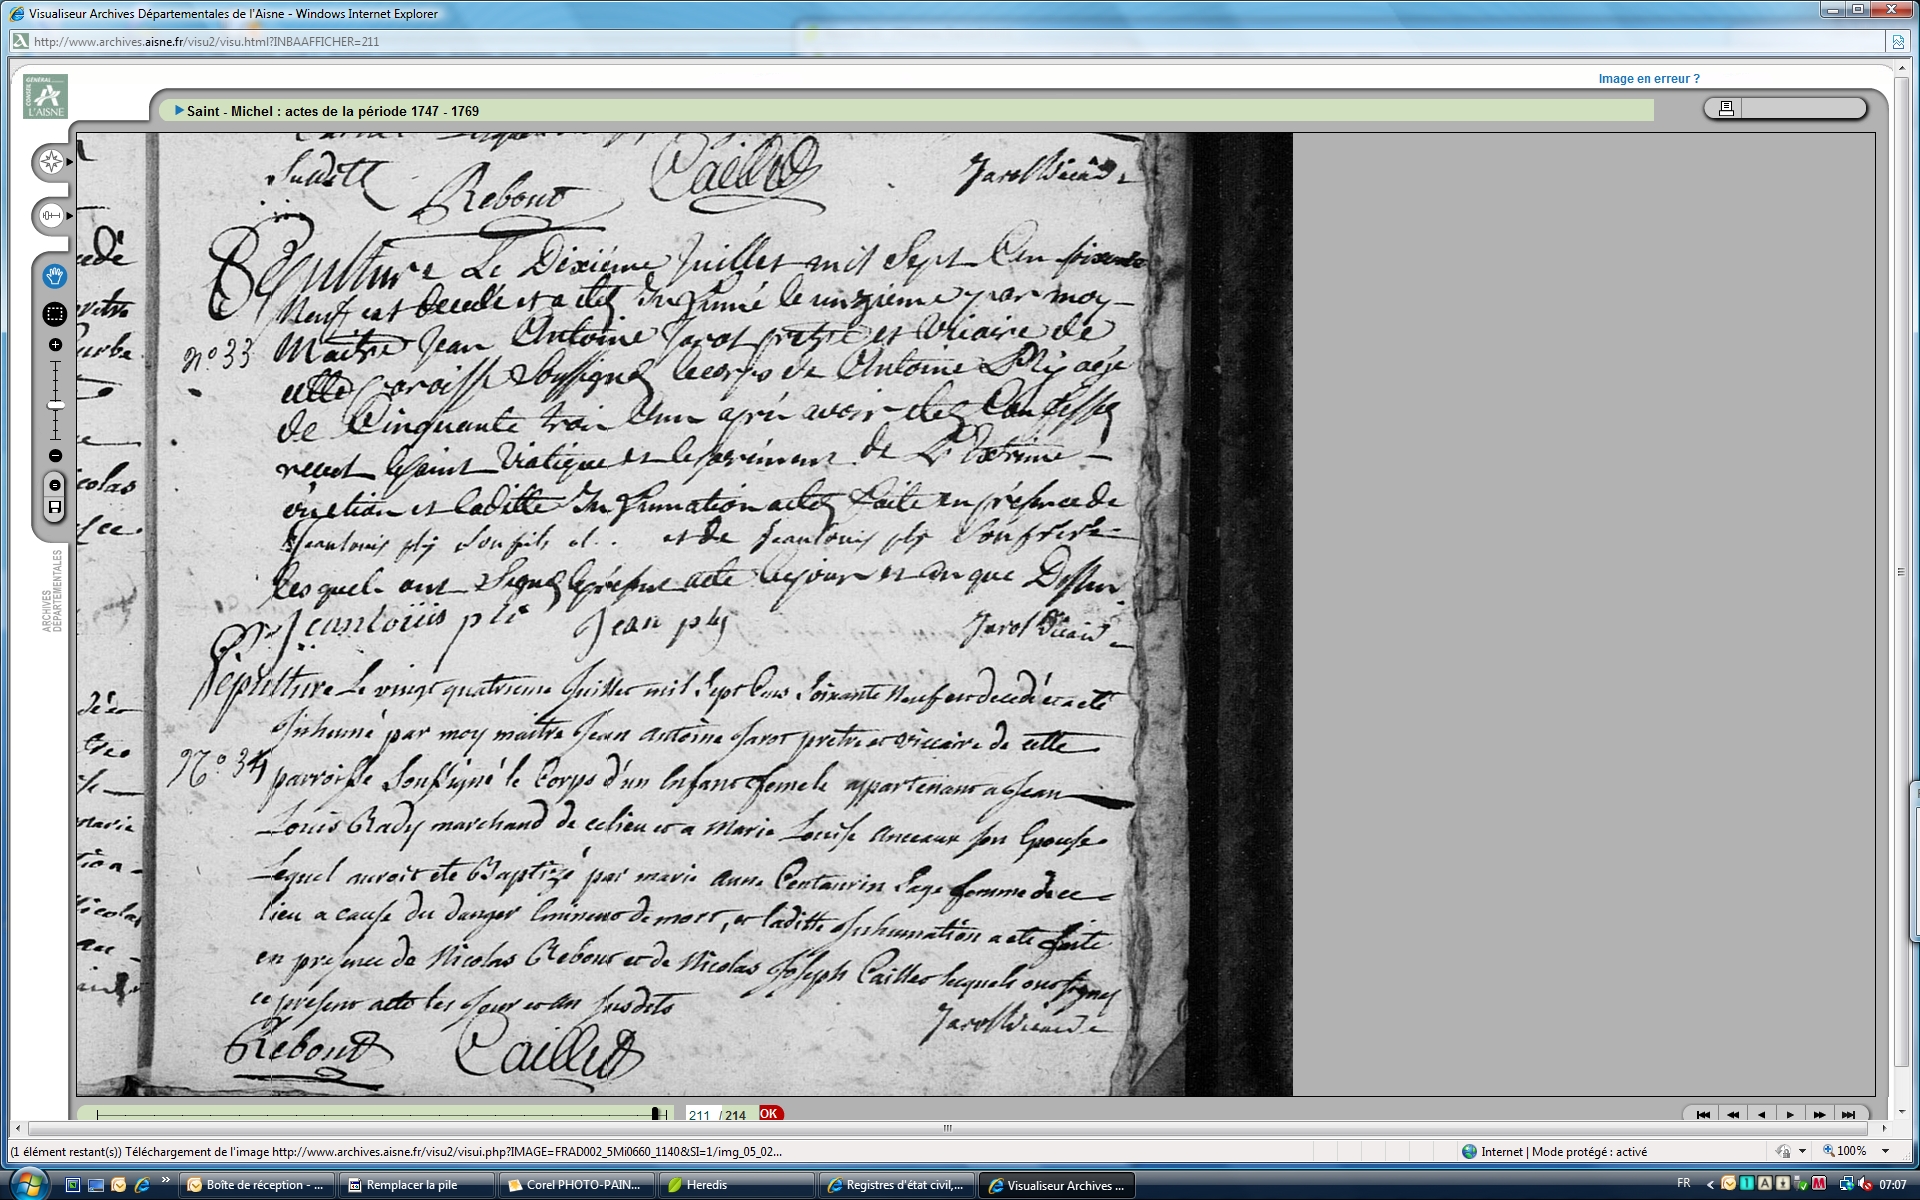 Visualiseur Archives Départementales de l'Aisne - Windows Internet Explorer
http://www.archives.aisne.fr/visu2/visu.html?INBAAFFICHER=211
Image en erreur ?
GÉNÉRAL
CONSEIL
L'AISNE
Saint - Michel : actes de la période 1747 - 1769
Rebout Caillet Jarot Vicaire
Sépulture Le Dixiéme Juillet mil Sept Cen soixante
Neuf est decedé et a etez Inhumé le unzieme par moy
N° 33
Maitre Jean Antoine Jarot pretre et vicaire de
cette Paroisse Soussignez le corps de Antoine Ply agé
de Cinquante trois Ans aprés avoir etez Confessez
receut le saint Viatique et le sacrement de L'Extrême
onction et laditte Inhumation a etez faite en présence de
Jean louis ply son fils et de Jean louis ply Son frere
lesquels ont Signez le présent acte le jour et an que Dessus
Jean loüis pli Jean ply Jarot Vicaire
Sépulture Le vingt quatrieme Juillet mil Sept Cens Soixante Neuf est decedé et a eté
Inhumé par moy maitre Jean Antoine Jarot pretre et viccaire de cette
N° 34
parroisse Soussigné le Corps d'un Enfant femele appartenant a Jean
Louis Rady marchand de ce lieu et a Marie Louise Anceaux son Epouse
Lequel auroit eté Baptizé par marie Anne Centaurin Sage femme de ce
lieu a cause du danger Eminent de mort, et laditte Inhumation a eté faite
en presence de Nicolas Rebout et de Nicolas Joseph Caillet lequels ont signez
ce present acte les Jour et an susdits
Jarot Vicaire
Rebout Caillet
colas
marie
Nicolas
ARCHIVES
DEPARTEMENTALES
211 / 214 OK
(1 élément restant(s)) Téléchargement de l'image http://www.archives.aisne.fr/visu2/visui.php?IMAGE=FRAD002_5Mi0660_1140&SI=1/img_05_02...
Internet | Mode protégé : activé
100%
Boîte de réception - ...
Remplacer la pile
Corel PHOTO-PAIN...
Heredis
Registres d'état civil,...
Visualiseur Archives ...
FR
07:07